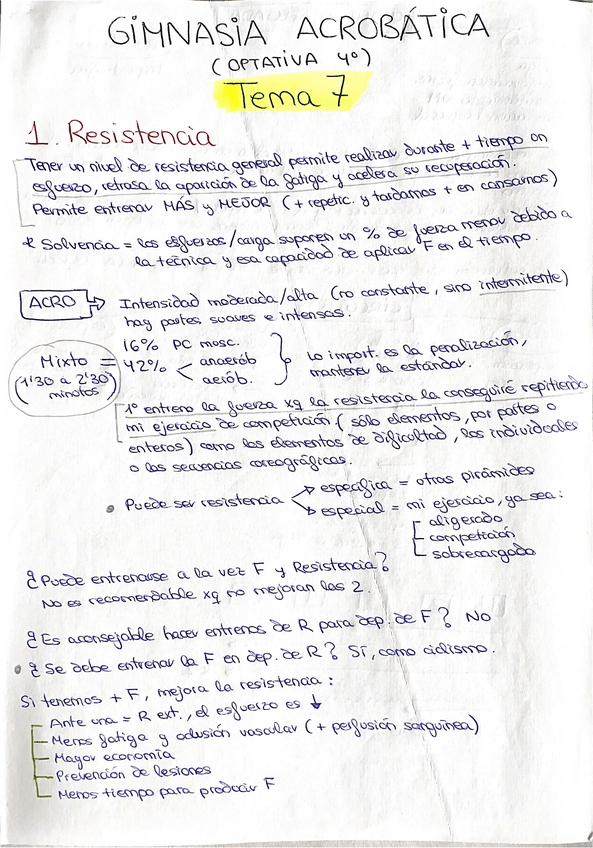 GIMNASIA ACROBÁTICA
(OPTATIVA 4º)
Tema 7
1. Resistencia
Tener un nivel de resistencia general permite realizar durante + tiempo un
esfuerzo, retrasa la aparición de la fatiga y acelera su recuperación.
Permite entrenar MÁS y MEJOR (+ repetic. y tardamos + en cansarnos)
* Solvencia = los esfuerzos/carga suponen un % de fuerza menor debido a
la técnica y esa capacidad de aplicar F en el tiempo.
ACRO → Intensidad moderada/alta (no constante, sino intermitente)
hay partes suaves e intensas.
Mixto =
(1'30 a 2'30)
minutos
16% PC musc.
42% < anaerób
aerób.
Lo import. es la penalización,
mantener la estándar.
1º entreno la fuerza xq la resistencia la conseguiré repitiendo
mi ejercicio de competición (sólo elementos, por partes o
enteros) como los elementos de dificultad, los individuales
o las secuencias coreográficas.
• Puede ser resistencia
→ específica = otras pirámides
→ especial = mi ejercicio, ya sea:
aligerado
competición
sobrecargado
¿Puede entrenarse a la vez F y Resistencia?
No es recomendable xq no mejoran las 2.
¿Es aconsejable hacer entrenos de R para dep. de F? NO
• ¿Se debe entrenar la F en dep. de R? Sí, como ciclismo.
Si tenemos + F, mejora la resistencia:
Ante una = R ext., el esfuerzo es ↓
Menos fatiga y oclusión vascular (+ perfusión sanguínea)
Mayor economía
Prevención de lesiones
Menos tiempo para producir F